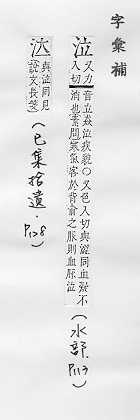 字彙補
泣
又力入切
音立猋泣疾貌○又色入切與澀同血凝不
消也素問寒氣客於背俞之脈則血脈泣
(水部.P.113)
泣
與泣同見
說文長箋
(巳集拾遺.P.128)